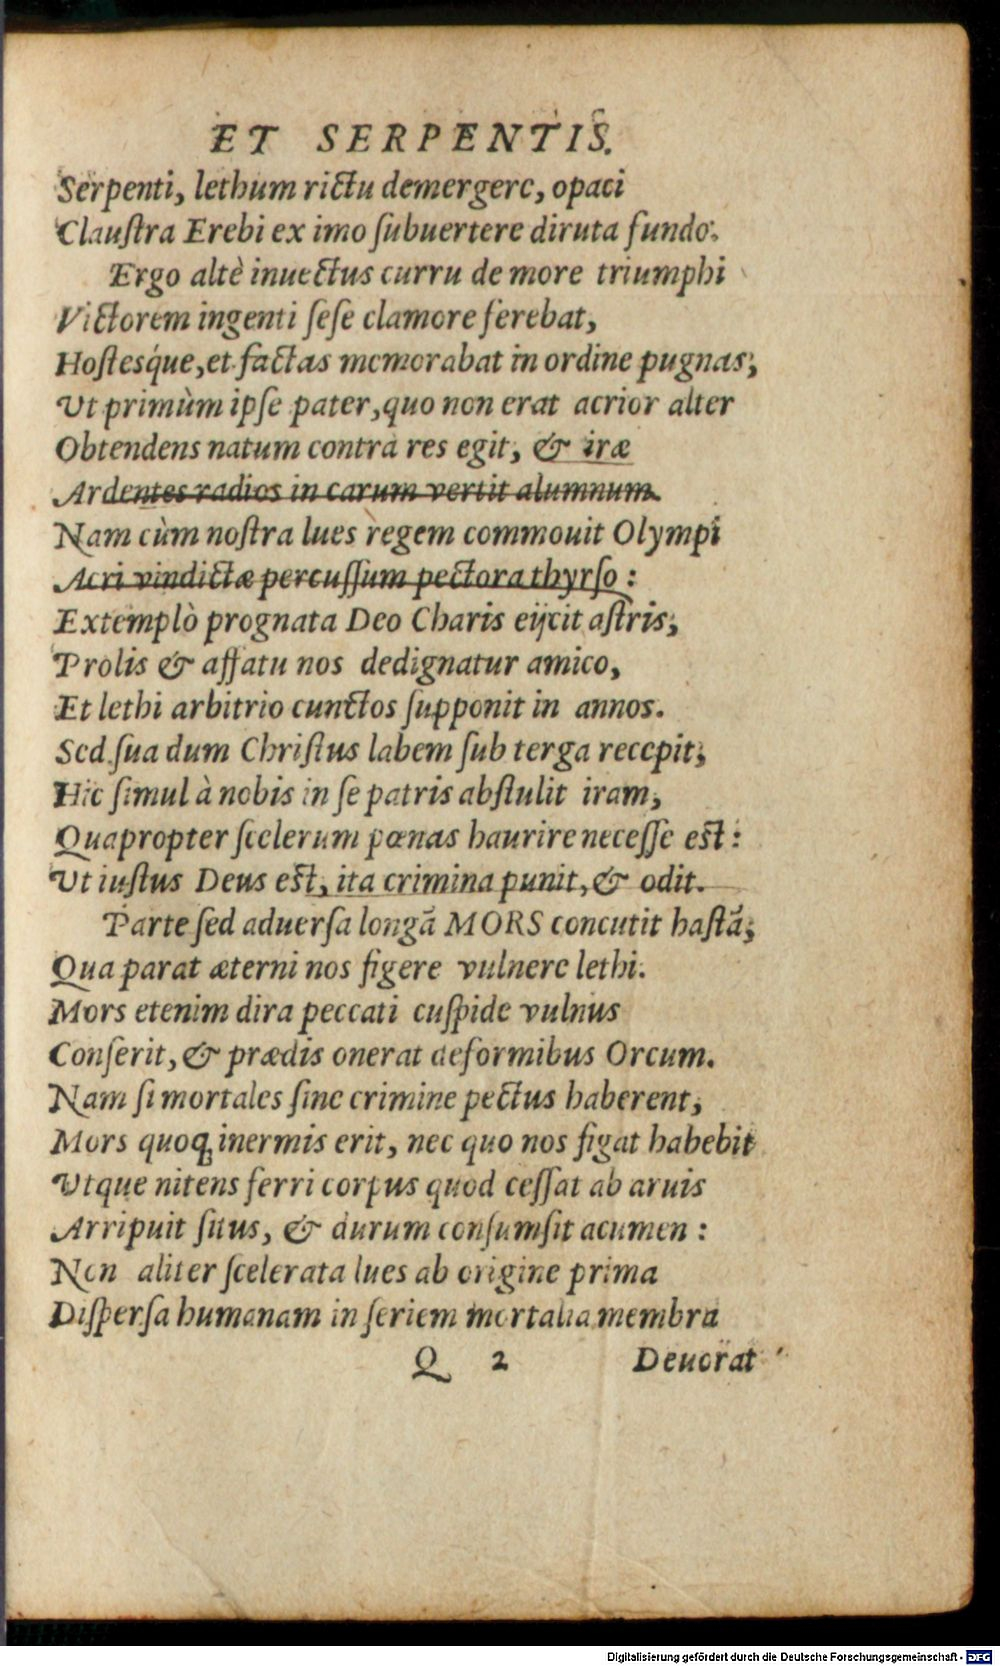 ET SERPENTIS.
Serpenti, lethum rictu demergere, opaci
Clauſtra Erebi ex imo ſubuertere diruta fundo.
Ergo altè inuectus curru de more triumphi
Victorem ingenti ſeſe clamore ferebat,
Hoſtesq́ue, et factas memorabat in ordine pugnas;
Vt primùm ipſe pater, quo non erat acrior alter
Obtendens natum contra res egit, & iræ
Ardentes radios in carum vertit alumnum.
Nam cùm noſtra lues regem commouit Olympi
Acri vindictæ percuſſum pectora thyrſo:
Extemplò prognata Deo Charis eijcit aſtris;
Prolis & affatu nos dedignatur amico,
Et lethi arbitrio cunctos ſupponit in annos.
Sed ſua dum Chriſtus labem ſub terga recepit;
Hic ſimul à nobis in ſe patris abſtulit iram;
Quapropter ſcelerum pœnas haurire neceſſe eſt:
Vt iuſtus Deus eſt, ita crimina punit, & odit.
Parte ſed aduerſa longā MORS concutit haſtā;
Qua parat æterni nos figere vulnere lethi.
Mors etenim dira peccati cuſpide vulnus
Conſerit, & prædis onerat deformibus Orcum.
Nam ſi mortales ſine crimine pectus haberent,
Mors quoq; inermis erit, nec quo nos figat habebit
Vtque nitens ferri corpus quod ceſſat ab aruis
Arripuit ſitus, & durum conſumſit acumen:
Non aliter ſcelerata lues ab origine prima
Diſperſa humanam in ſeriem mortalia membra
Q 2 Deuorat
Digitalisierung gefördert durch die Deutsche Forschungsgemeinschaft - DFG